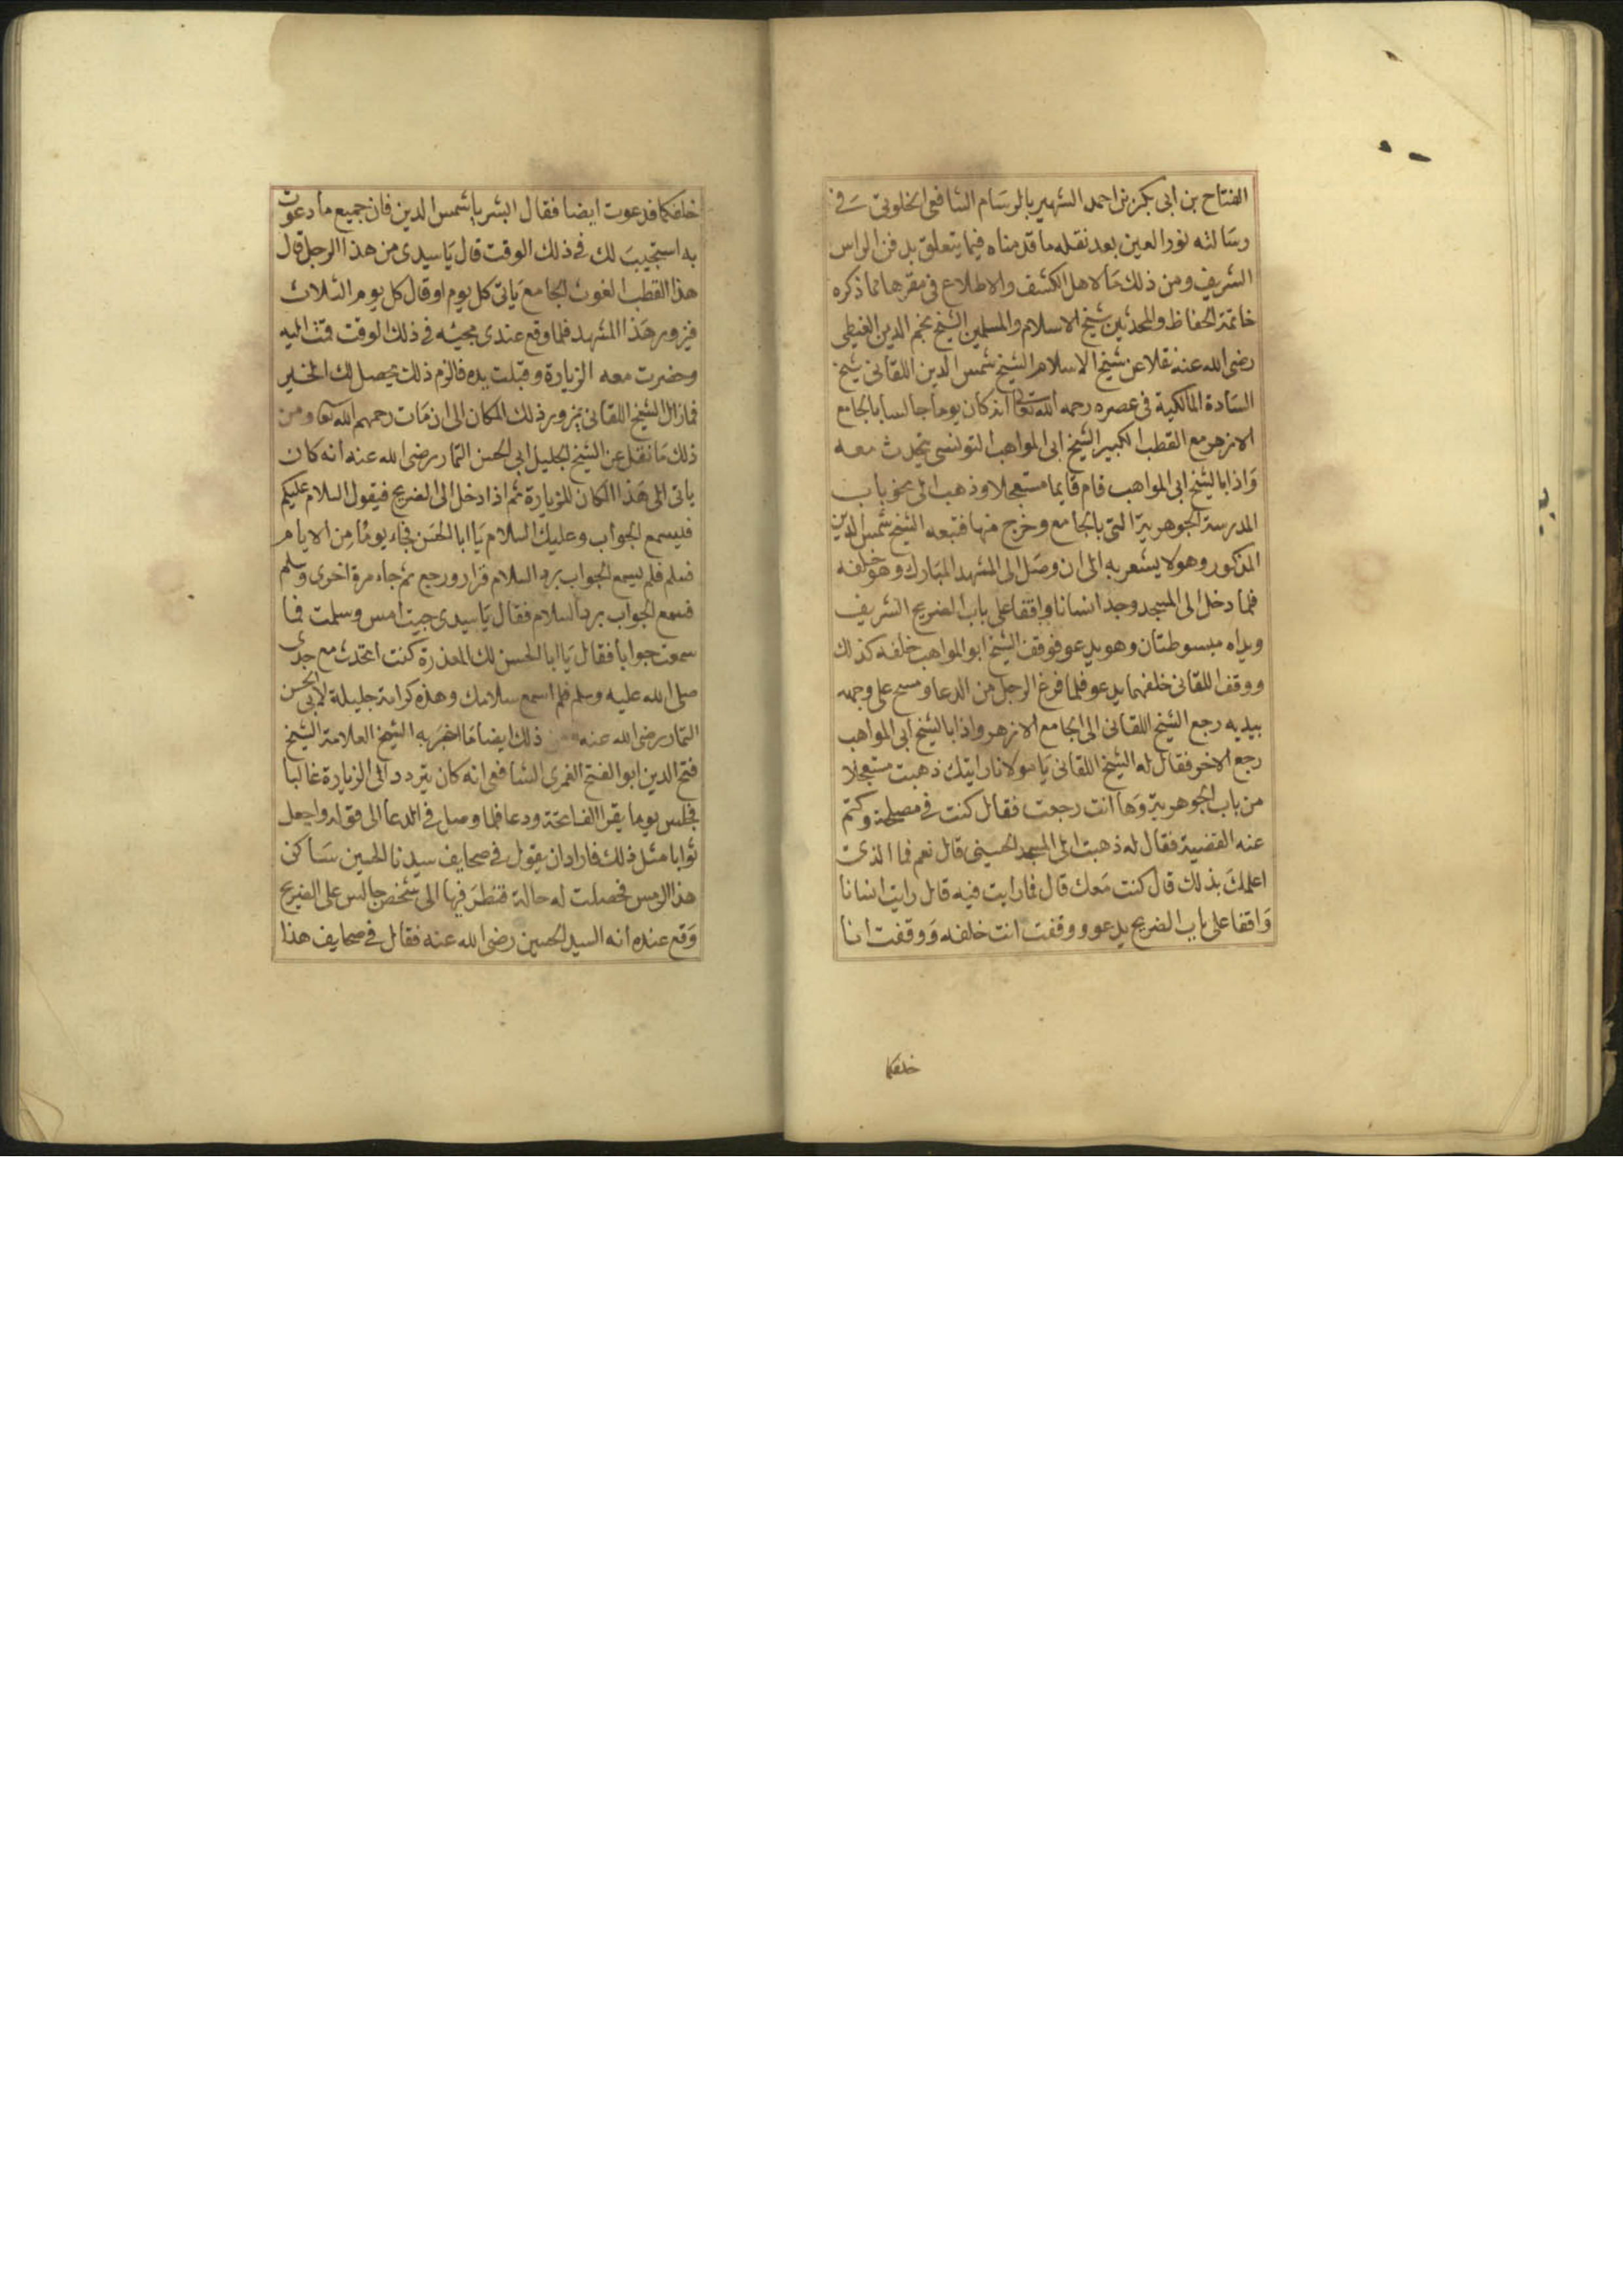 الفتاح بن ابى بكر بن احمد الشهير بالرسام الشافعى الخلوتى فى
رسالته نور العين بعد نقله ما قدمناه فيما يتعلق بدفن الراس
الشريف ومن ذلك ما لاهل الكشف والاطلاع فى مقرها مما ذكره
خاتمة الحفاظ والمحدثين شيخ الاسلام والمسلمين الشيخ نجم الدين الغيطى
رضى الله عنه نقلا عن شيخ الاسلام الشيخ شمس الدين اللقانى شيخ
السادة المالكية فى عصره رحمه الله تعالى انه كان يوما جالسا بالجامع
الازهر مع القطب الكبير الشيخ ابى المواهب التونسى يتحدث معه
واذا بالشيخ ابى المواهب قام قايما مستعجلا وذهب الى نحو باب
المدرسة الجوهرية التى بالجامع وخرج منها فتبعه الشيخ شمس الدين
المذكور وهو لا يشعر به الى ان وصل الى المشهد المبارك وهو خلفه
فلما دخل الى المسجد وجد انسانا واقفا على باب الضريح الشريف
ويداه مبسوطتان وهو يدعو فوقف الشيخ ابو المواهب خلفه كذلك
ووقف اللقانى خلفهما يدعو فلما فرغ الرجل من الدعا ومسح على وجهه
بيديه رجع الشيخ اللقانى الى الجامع الازهر واذا بالشيخ ابى المواهب
رجع الاخر فقال له الشيخ اللقانى يا مولانا رايتك ذهبت مستعجلا
من باب الجوهرية وها انت رجعت فقال كنت فى مصلحة وكتم
عنه القضية فقال له ذهبت الى المسجد الحسينى قال نعم فما الذى
اعلمك بذلك قال كنت معك قال فما رايت فيه قال رايت انسانا
واقفا على باب الضريح يدعو ووقفت انت خلفه ووقفت انا
خلفكما
خلفكما فدعوت ايضا فقال ابشر يا شمس الدين فان جميع ما دعوت
به استجيب لك فى ذلك الوقت قال يا سيدى من هذا الرجل قال
هذا القطب الغوث الجامع ياتى كل يوم او قال كل يوم الثلاث
فيزور هذا المشهد فلما وقع عندى مجيئه فى ذلك الوقت قمت اليه
وحضرت معه الزيارة وقبلت يده فالزم ذلك يحصل لك الخير
فما زال الشيخ اللقانى يزور ذلك المكان الى ان مات رحمهم الله تعا ومن
ذلك ما نقل عن الشيخ الجليل ابى الحسن التمار رضى الله عنه انه كان
ياتى الى هذا المكان للزيارة ثم اذا دخل الى الضريح فيقول السلام عليكم
فيسمع الجواب وعليك السلام يا ابا الحسن فجاء يوما من الايام
فسلم فلم يسمع الجواب برد السلام فزار ورجع ثم جاء مرة اخرى وسلم
فسمع الجواب برد السلام فقال يا سيدى جيت امس وسلمت فما
سمعت جوابا فقال يا ابا الحسن لك المعذرة كنت اتحدث مع جدى
صلى الله عليه وسلم فلم اسمع سلامك وهذه كرامة جليلة لابى الحسن
التمار رضى الله عنه ومن ذلك ايضا ما اخبر به الشيخ العلامة الشيخ
فتح الدين ابو الفتح الغمرى الشافعى انه كان يتردد الى الزيارة غالبا
فجلس يوما يقرا الفاتحة ودعا فلما وصل فى الدعا الى قوله واجعل
ثوابا مثل ذلك فاراد ان يقول فى صحايف سيدنا الحسين ساكن
هذا الرمس فحصلت له حالة فنظر فيها الى شخص جالس على الضريح
وقع عنده انه السيد الحسين رضى الله عنه فقال فى صحايف هذا